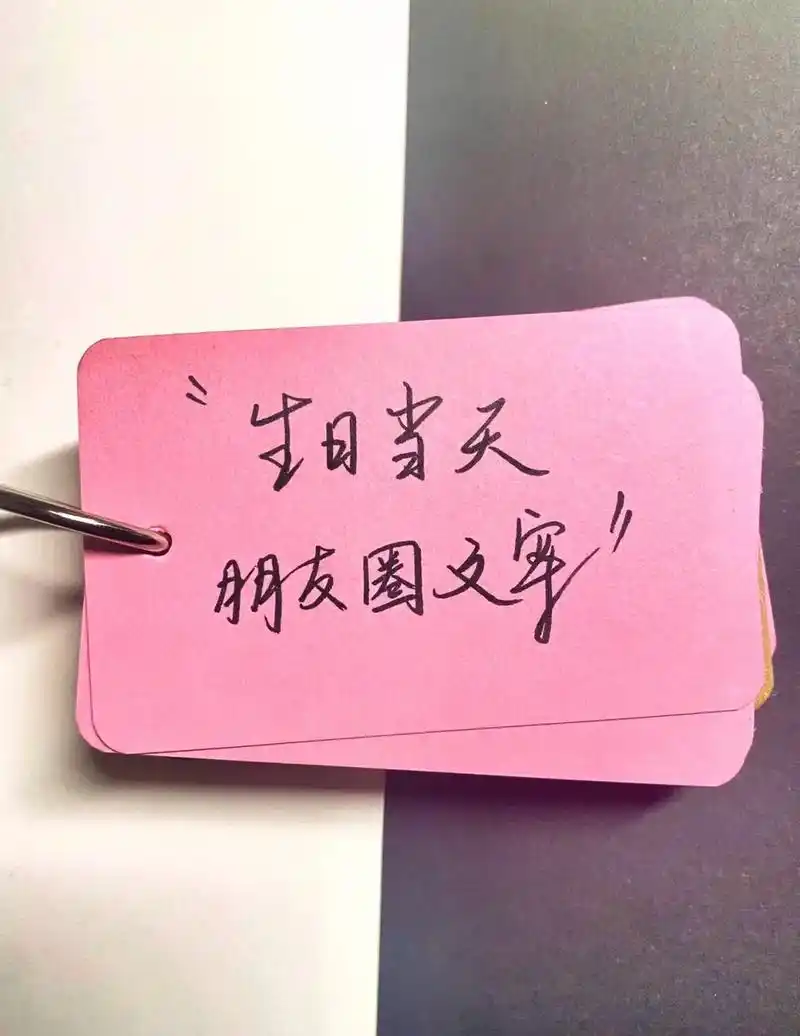 "生日当天
朋友圈文案"